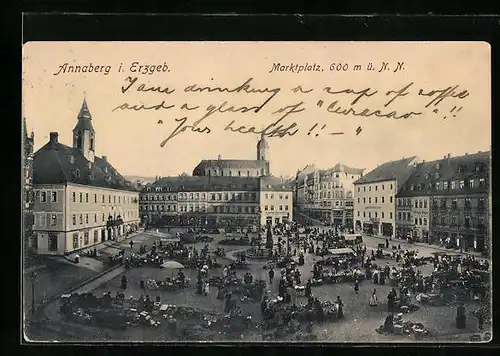 Annaberg i. Erzgeb.
Marktplatz, 600 m ü. N. N.
I am drinking a cup of coffee
and a glass of "Curacao"!!
"Your health!! –